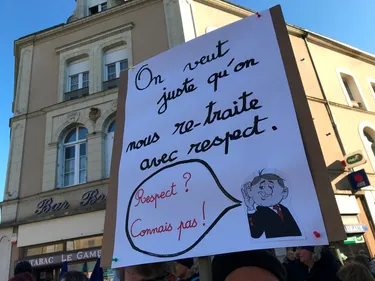 On veut
juste qu'on
nous re-traite
avec respect.
Respect ?
Connais pas !
Bar
TABAC LE GAMB